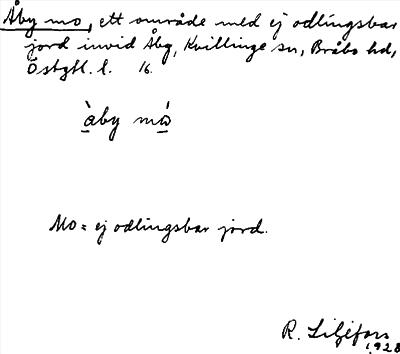 Åby mo, ett område med ej odlingsbar
jord invid Åby, Kvillinge sn, Bråbo hd,
Östgtl. l. 16.
àby mó
Mo = ej odlingsbar jord.
R. Liljefors
1928